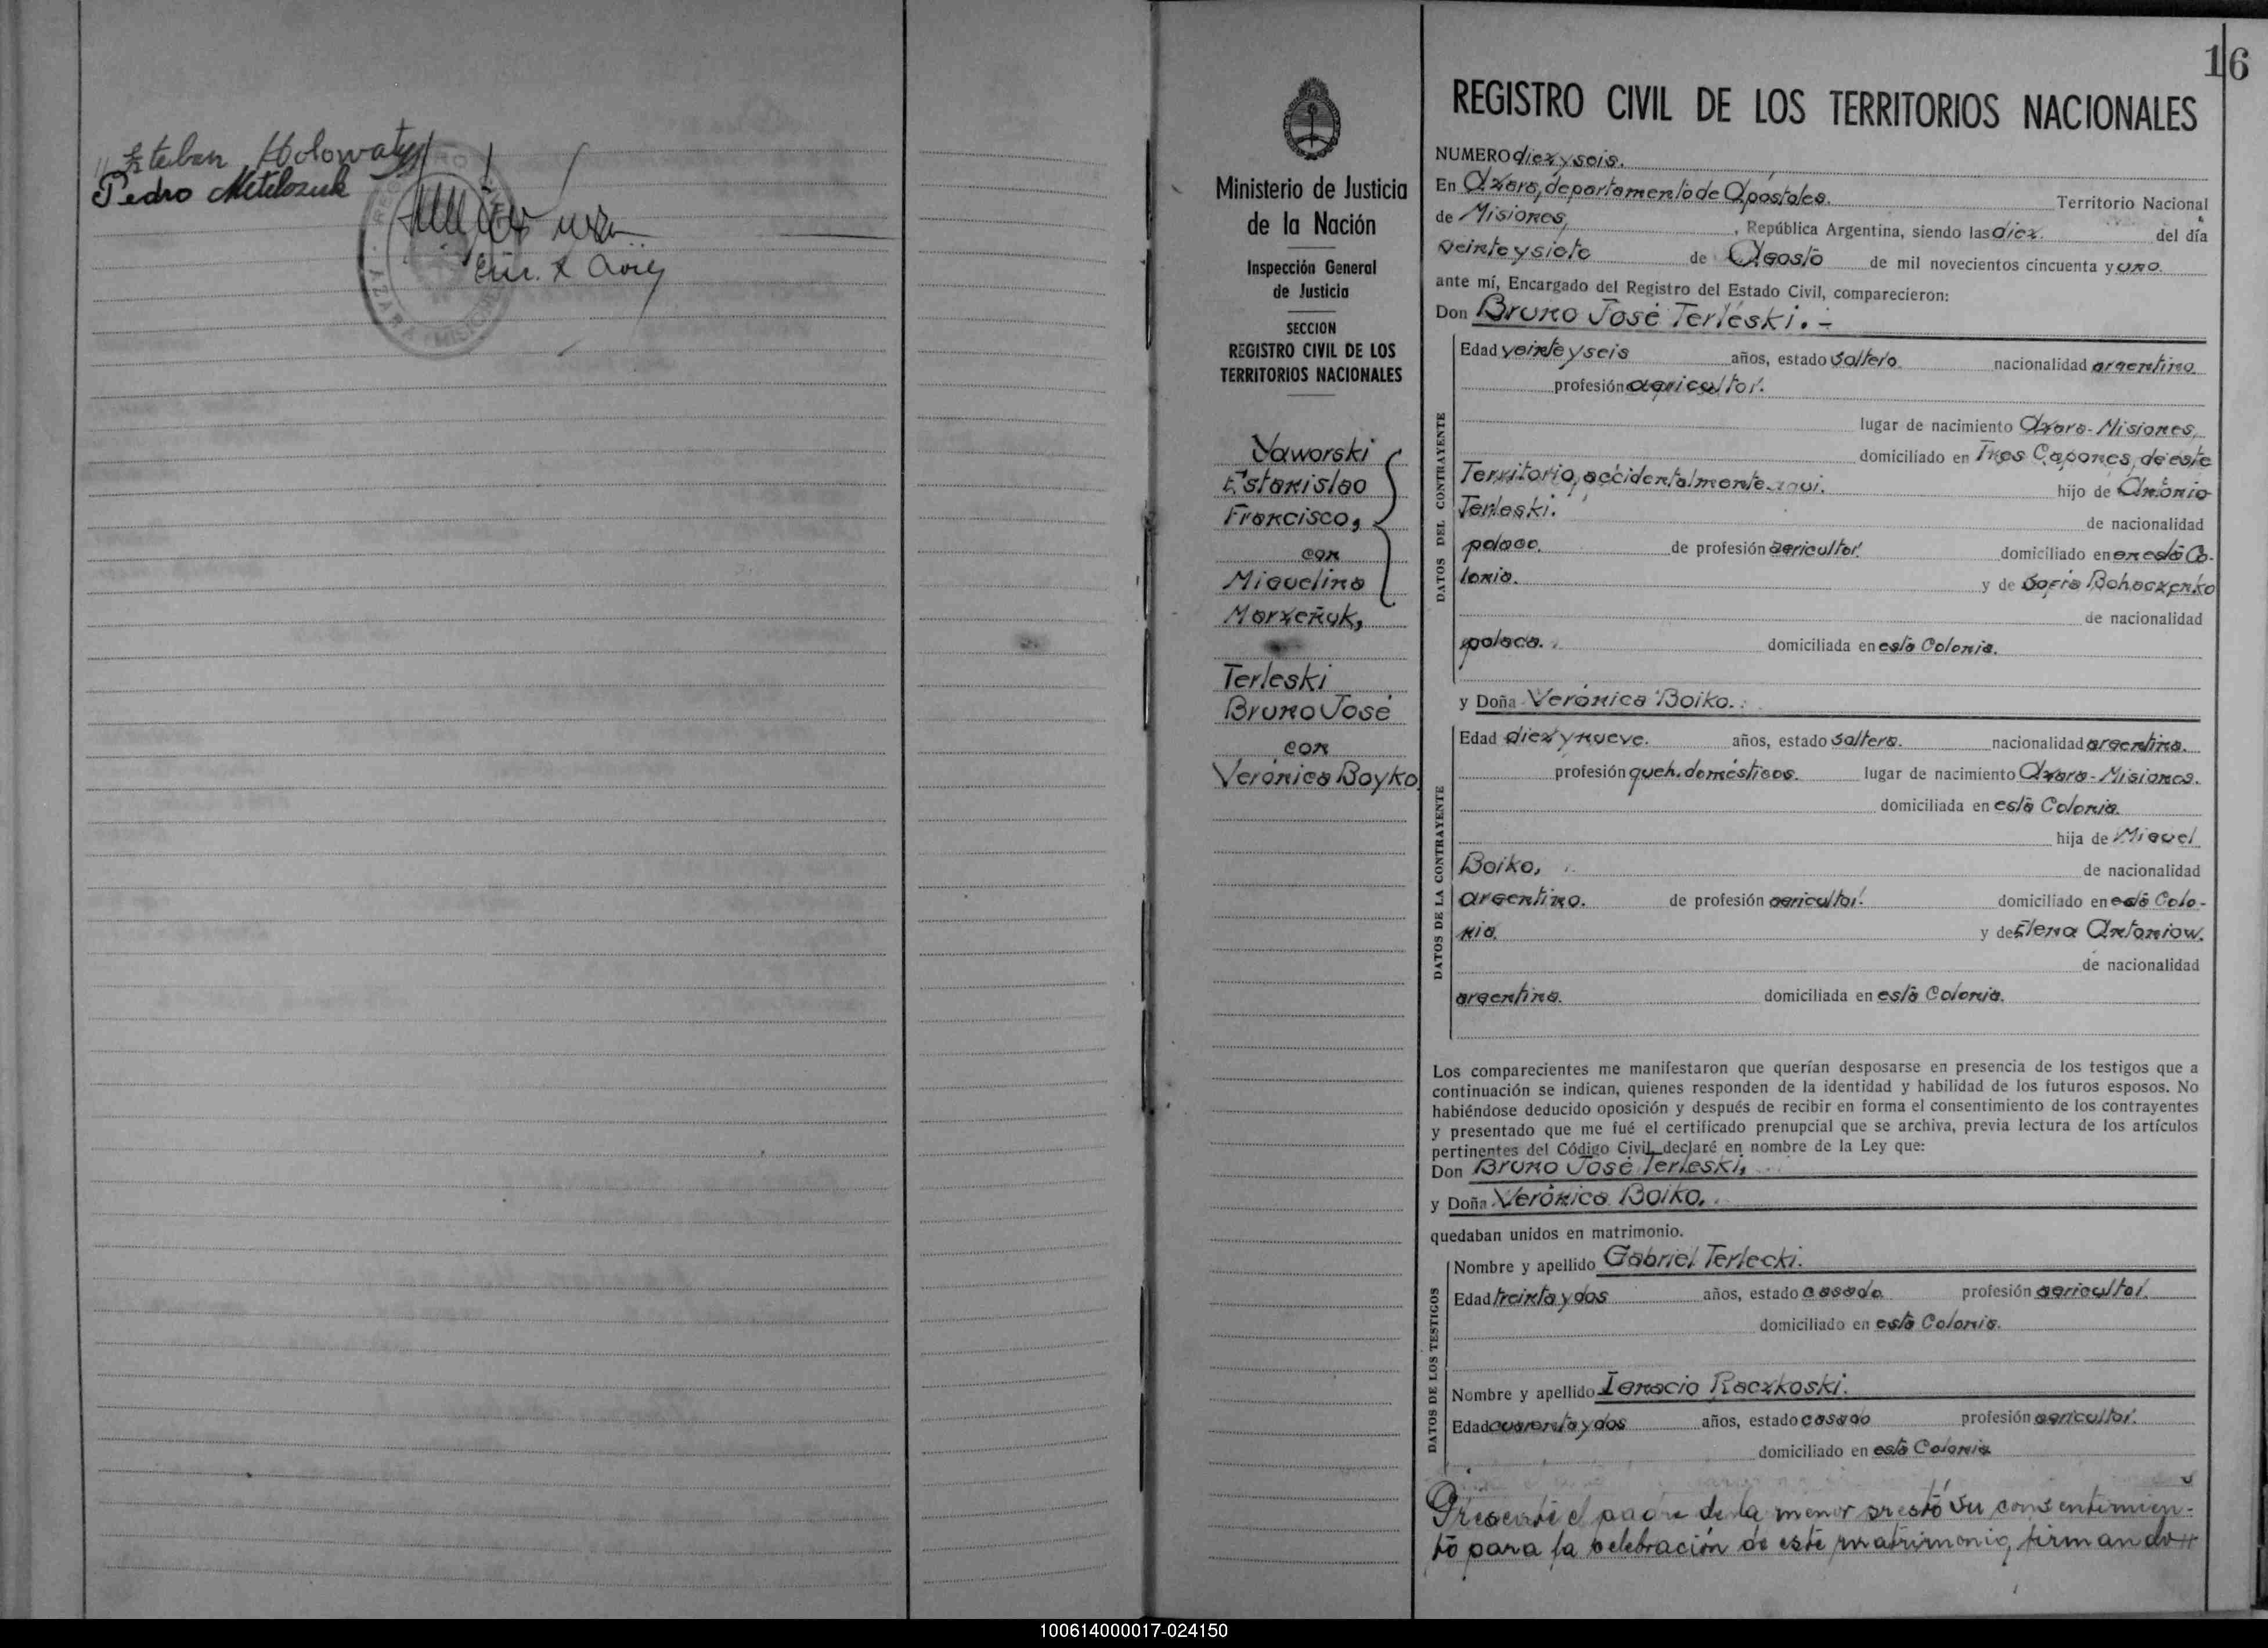 Esteban Holowaty
Pedro Metelozuk
Enc. R Civil
AZARA MISIONES
16
Ministerio de Justicia
de la Nación
Inspección General
de Justicia
SECCION
REGISTRO CIVIL DE LOS
TERRITORIOS NACIONALES
Yaworski
Estanislao
Francisco,
con
Miguelina
Marzeñuk,
Terleski
Bruno José
con
Verónica Boyko,
REGISTRO CIVIL DE LOS TERRITORIOS NACIONALES
NUMERO diez y seis.
En Azara, departamento de Apóstoles. Territorio Nacional
de Misiones, , República Argentina, siendo las diez. del día
veinte y siete de Agosto de mil novecientos cincuenta y uno.
ante mí, Encargado del Registro del Estado Civil, comparecieron:
Don Bruno José Terleski. -
DATOS DEL CONTRAYENTE
Edad veinte y seis años, estado soltero. nacionalidad argentino.
profesión agricultor.
lugar de nacimiento Azara-Misiones,
domiciliado en Tres Capones, de este
Territorio, accidentalmente aqui. hijo de Antonio
Terleski. de nacionalidad
polaco. de profesión agricultor. domiciliado en en esta Co-
lonia. y de Sofia Bohaczenko
de nacionalidad
polaca. domiciliada en esta Colonia.
y Doña Verónica Boiko.
DATOS DE LA CONTRAYENTE
Edad diez y nueve. años, estado soltera. nacionalidad argentina.
profesión queh. domésticos. lugar de nacimiento Azara-Misiones.
domiciliada en esta Colonia.
hija de Miguel
Boiko, de nacionalidad
argentino. de profesión agricultor. domiciliado en esta Colo-
nia. y de Elena Antoniow.
de nacionalidad
argentina. domiciliada en esta Colonia.
Los comparecientes me manifestaron que querían desposarse en presencia de los testigos que a
continuación se indican, quienes responden de la identidad y habilidad de los futuros esposos. No
habiéndose deducido oposición y después de recibir en forma el consentimiento de los contrayentes
y presentado que me fué el certificado prenupcial que se archiva, previa lectura de los artículos
pertinentes del Código Civil declaré en nombre de la Ley que:
Don Bruno José Terleski,
y Doña Verónica Boiko,
quedaban unidos en matrimonio.
DATOS DE LOS TESTIGOS
Nombre y apellido Gabriel Terlecki.
Edad treinta y dos años, estado casado profesión agricultor.
domiciliado en esta Colonia.
Nombre y apellido Ignacio Raczkoski.
Edad cuarenta y dos años, estado casado profesión agricultor.
domiciliado en esta Colonia
Presente el padre de la menor prestó su consentimien-
to para la celebración de este matrimonio, firmando
100614000017-024150